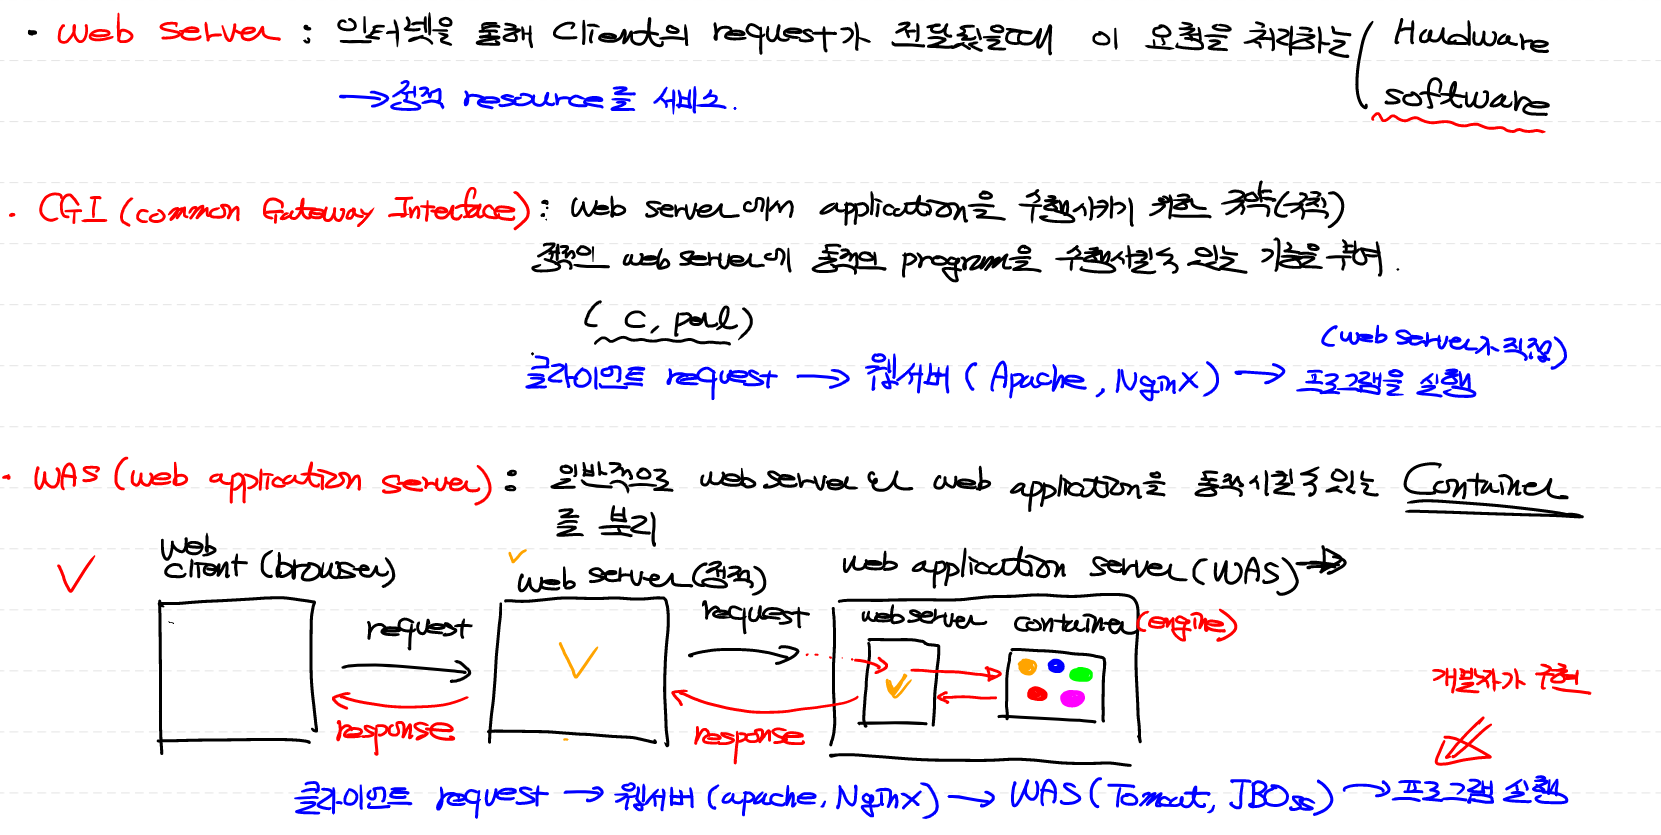 · web server : 인터넷을 통해 Client의 request가 전달됬을때 이 요청을 처리하는 ( Hardware
software
→ 정적 resource를 서비스.
· CGI (common Gateway Interface) : web server에서 application을 수행시키기 위한 규약(규칙)
정적인 web server에 동적인 program을 수행시킬수 있는 기능을 부여.
( C, perl )
(web server가 직접)
클라이언트 request → 웹서버 ( Apache, NginX ) → 프로그램을 실행
· WAS (web application server) : 일반적으로 web server와 web application을 동작시킬수있는 Container
를 분리
web
client (browser)
web server (정적)
web application server (WAS) →
request
request
web server
container (engine)
response
response
개발자가 구현
클라이언트 request → 웹서버 (apache, NginX) → WAS (Tomcat, JBOss) → 프로그램 실행